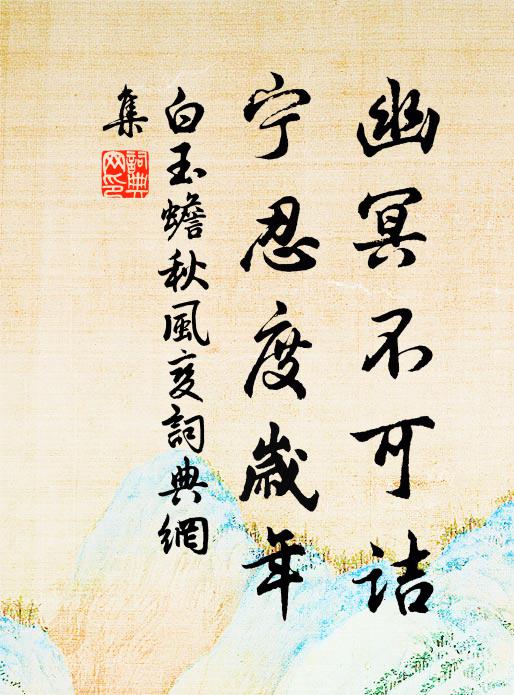 幽冥不可诘
宁忍度歲年
白玉蟾秋風变詞典網
集
詞典
网印